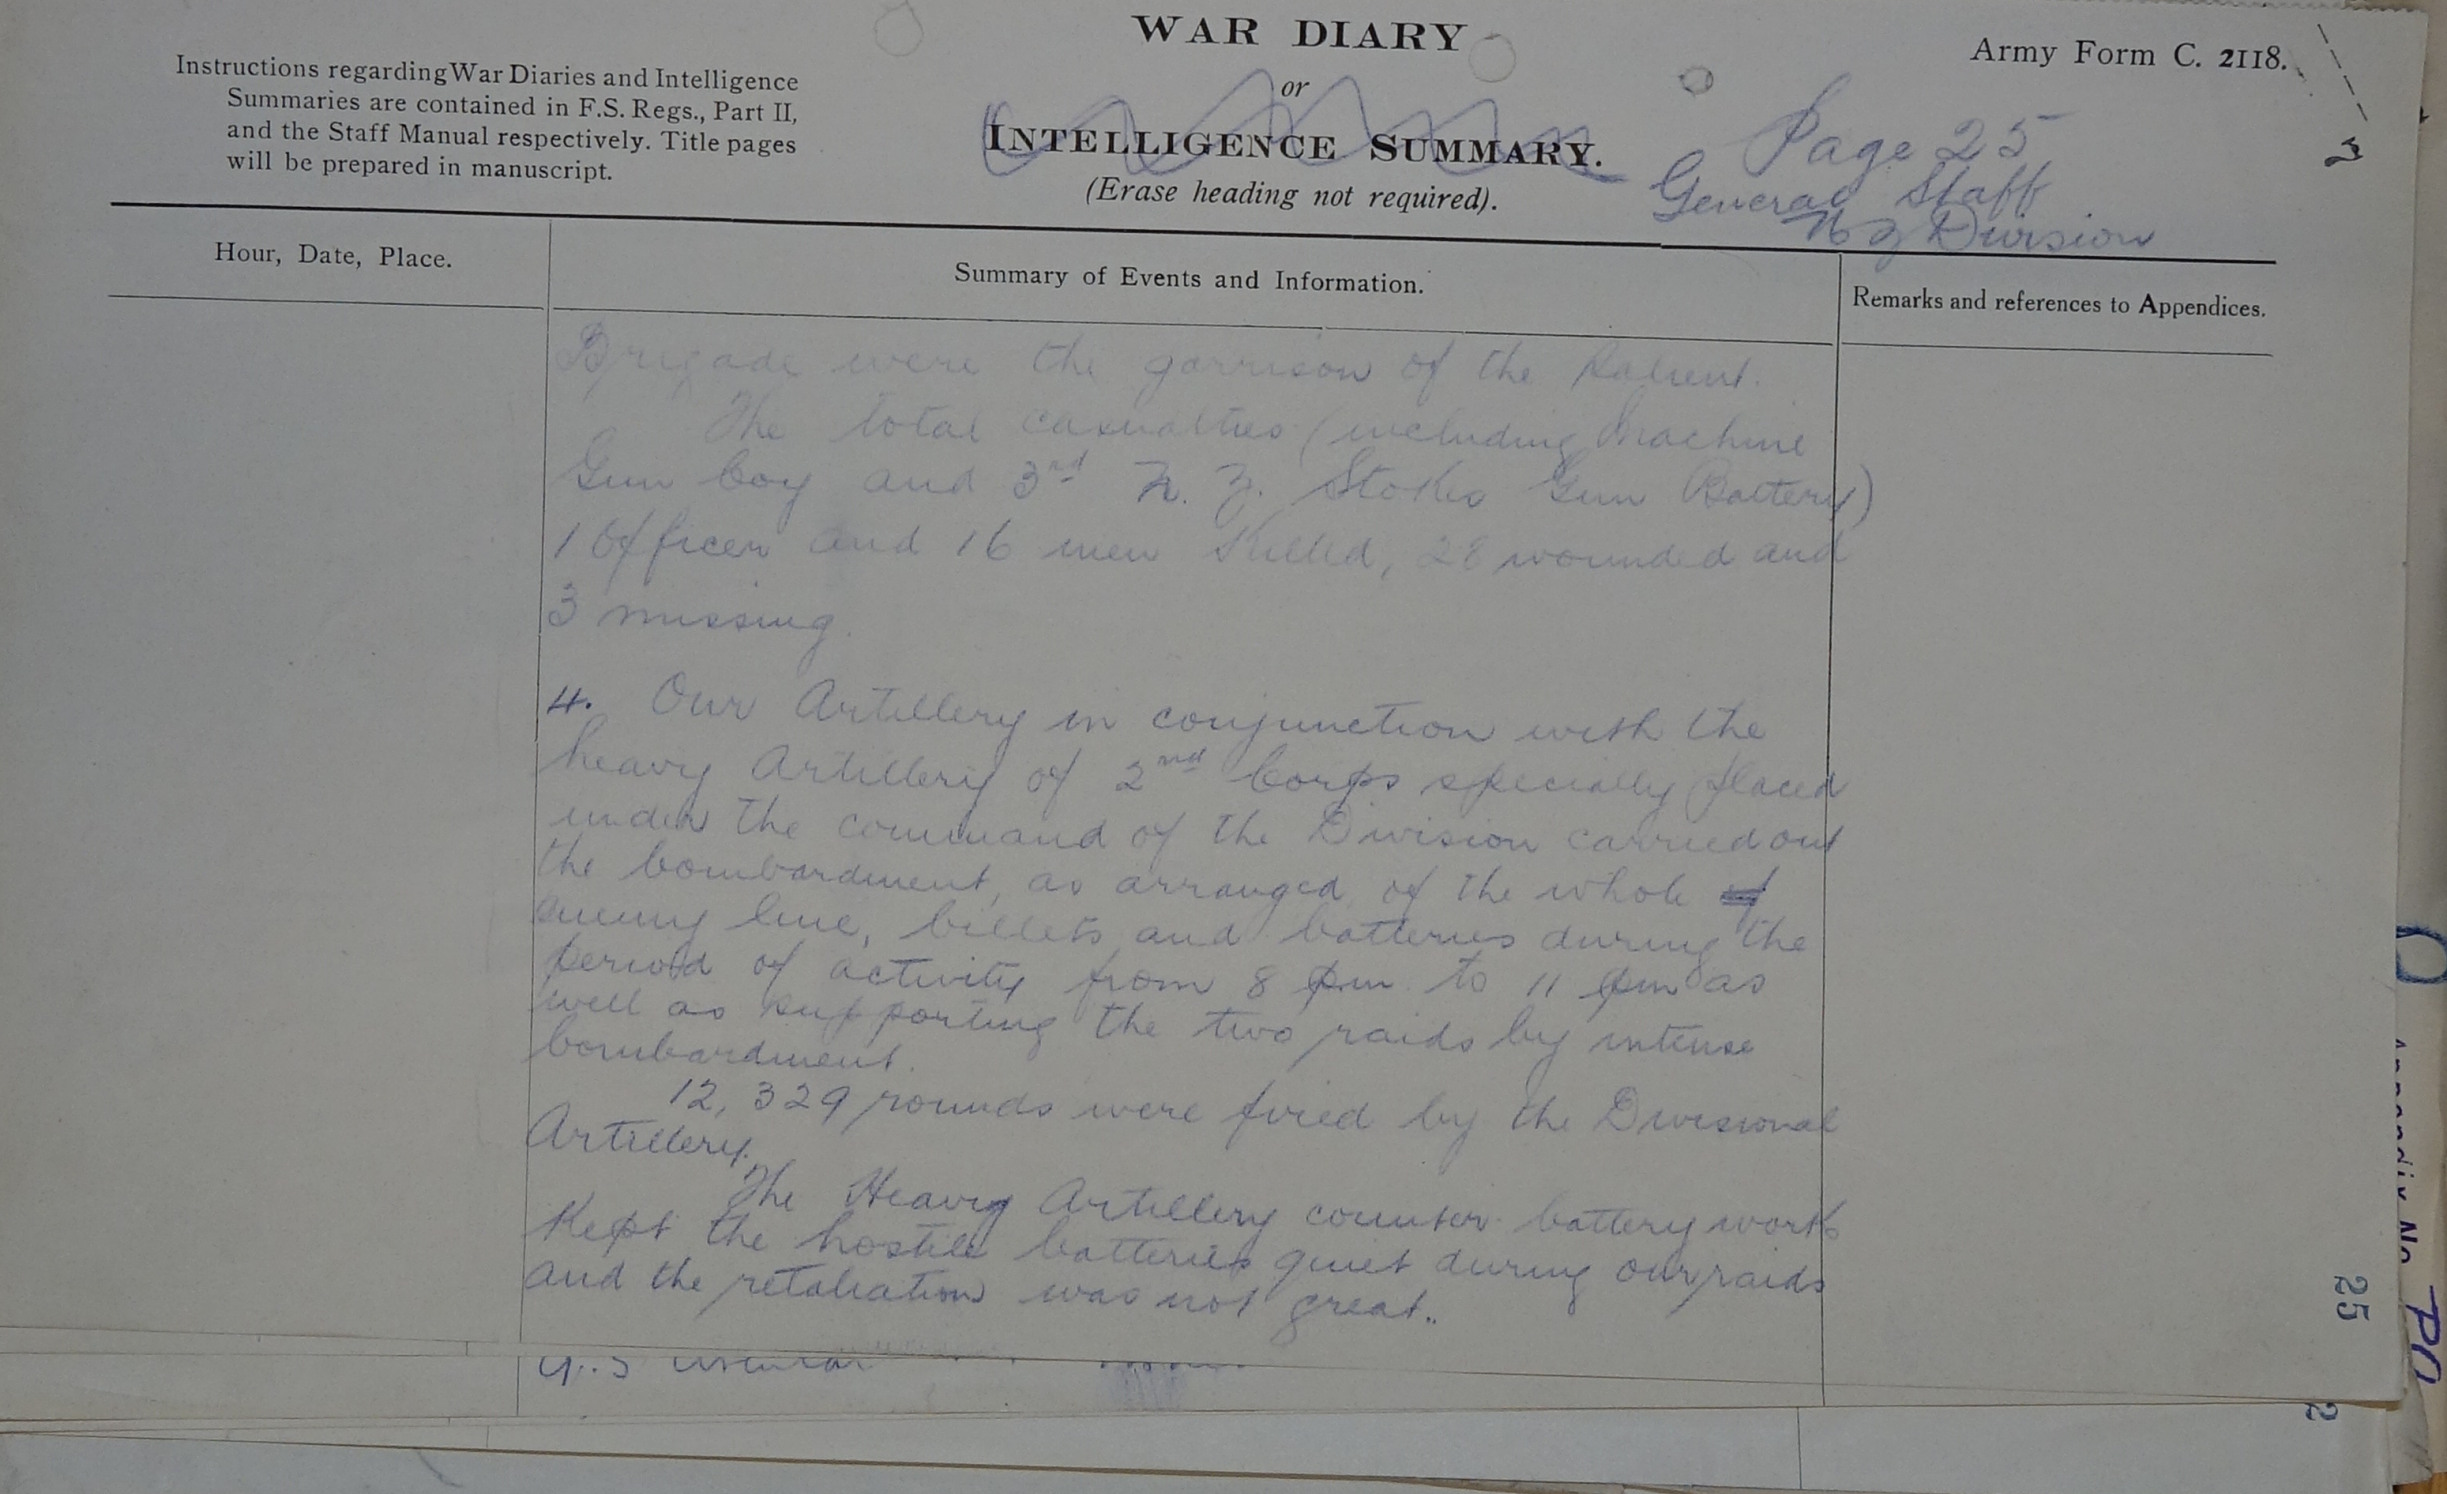 WAR DIARY
or
INTELLIGENCE SUMMARY.
(Erase heading not required).
Instructions regarding War Diaries and Intelligence
Summaries are contained in F.S. Regs., Part II,
and the Staff Manual respectively. Title pages
will be prepared in manuscript.
Army Form C. 2118.
Page 25
General Staff
NZ Division
Hour, Date, Place.
Summary of Events and Information.
Remarks and references to Appendices.
Brigade were the garrison of the Salient.
The total casualties (including Machine
Gun Coy and 3rd N. Z. Stokes Gun Battery)
1 Officer and 16 men killed, 28 wounded and
3 missing.
4. Our Artillery in conjunction with the
heavy Artillery of 2nd Corps specially placed
under the command of the Division carried out
the bombardment, as arranged, of the whole of
enemy line, billets and batteries during the
period of activity from 8 pm. to 11 pm as
well as supporting the two raids by intense
bombardment.
12,329 rounds were fired by the Divisional
Artillery.
The Heavy Artillery counter battery work
kept the hostile batteries quiet during our raids
and the retaliation was not great.
25